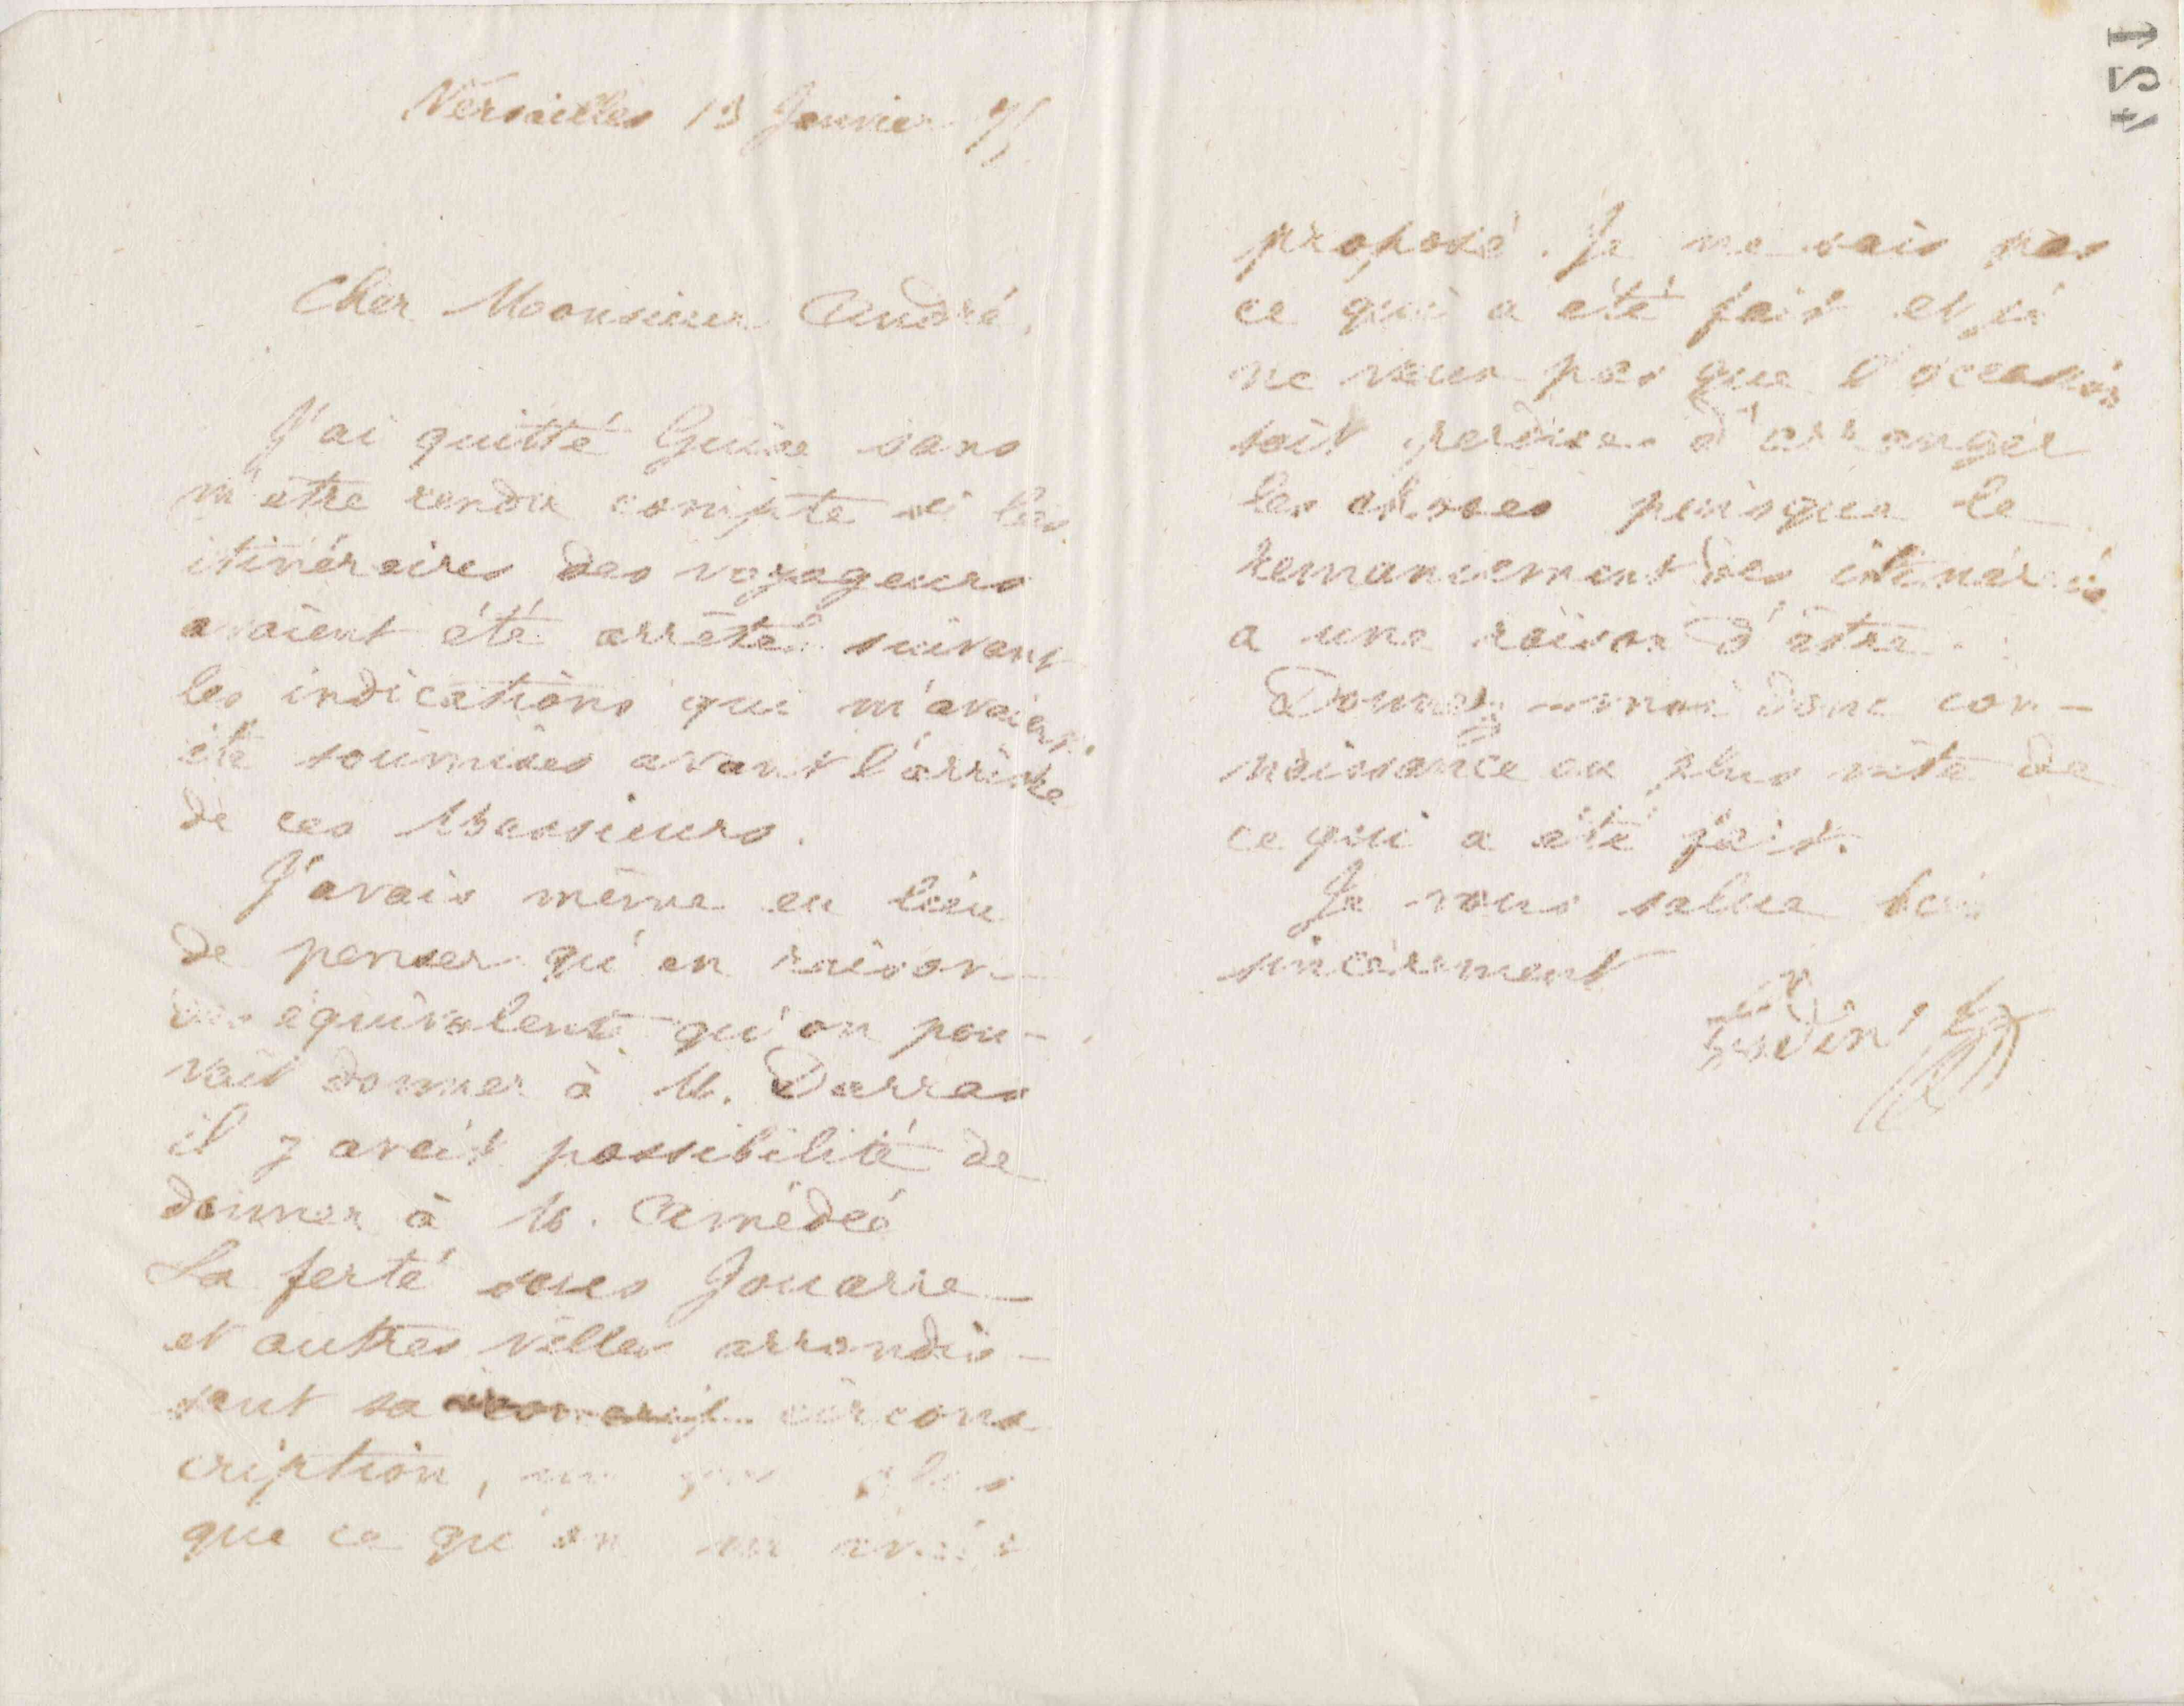 Versailles 13 Janvier 75
Cher Monsieur André,
J'ai quitté Guise sans
m'être rendu compte si les
itinéraires des voyageurs
avaient été arrêtés suivant
les indications qui m'avaient
été soumises avant l'arrivée
de ces Messieurs.
J'avais même eu lieu
de penser qu'en raison
des équivalents qu'on pou-
vait donner à M. Darras
il y avait possibilité de
donner à M. Amédée
La ferté sous Jouarre
et autres villes arrondis-
sant sa circons
cription, un peu plus
que ce qu'on en avait
proposé. Je ne sais pas
ce qui a été fait et je
ne veux pas que l'occasion
soit perdue d'arranger
les choses puisque le
remaniement des itinéraires
a une raison d'être.
Donnez-moi donc con-
naissance au plus vite de
ce qui a été fait.
Je vous salue bien
sincèrement
Godin
121